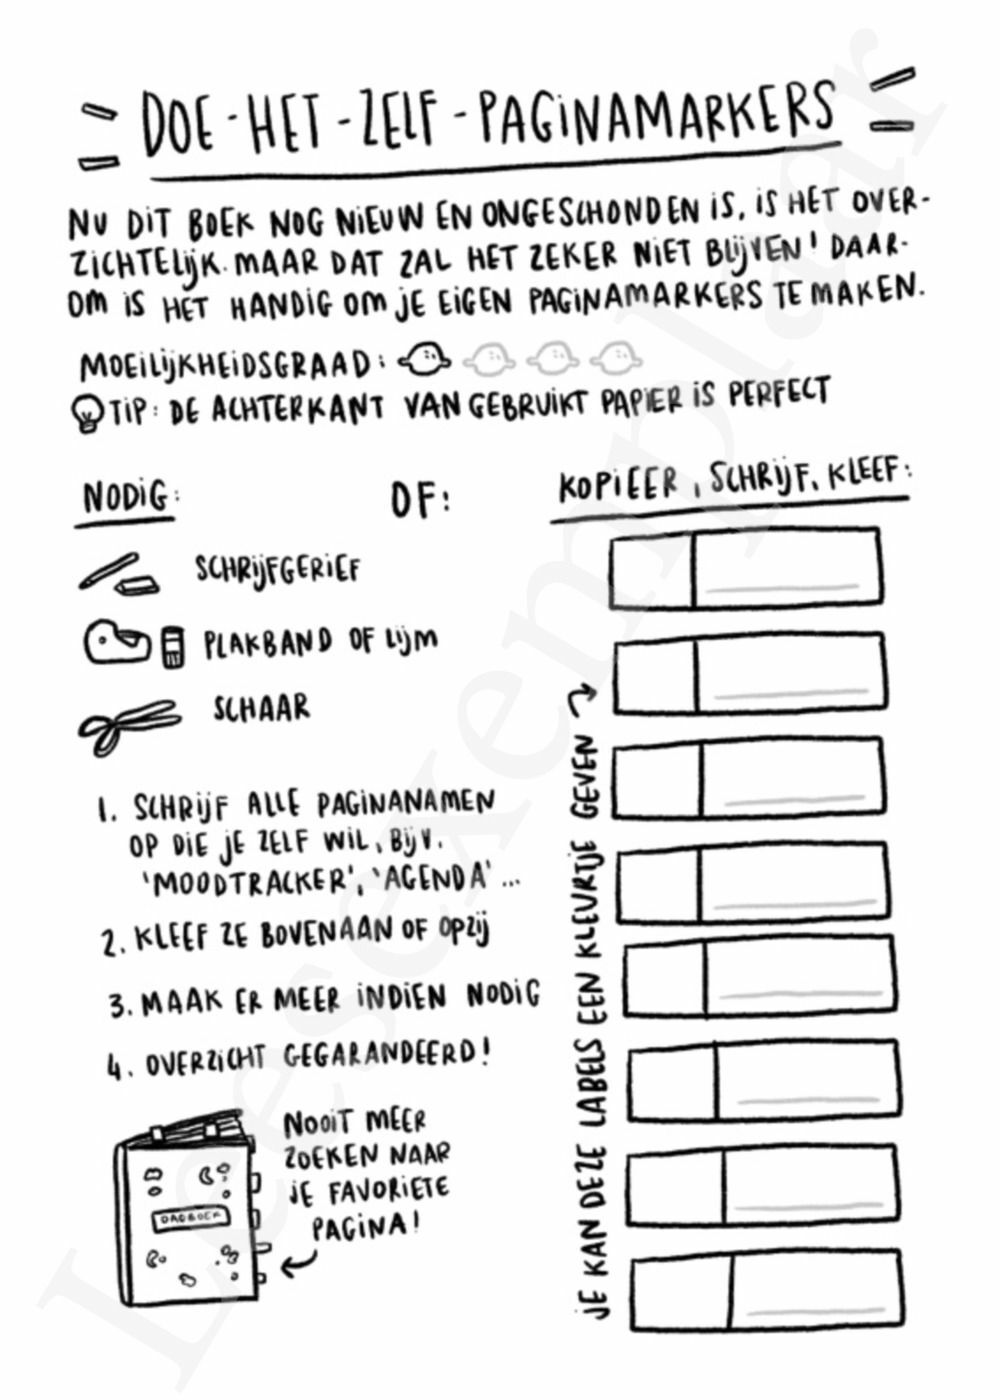 DOE-HET-ZELF-PAGINAMARKERS
NU DIT BOEK NOG NIEUW EN ONGESCHONDEN IS, IS HET OVER-
ZICHTELIJK. MAAR DAT ZAL HET ZEKER NIET BLIJVEN! DAAR-
OM IS HET HANDIG OM JE EIGEN PAGINAMARKERS TE MAKEN.
MOEILIJKHEIDSGRAAD:
TIP: DE ACHTERKANT VAN GEBRUIKT PAPIER IS PERFECT
NODIG:
SCHRIJFGERIEF
PLAKBAND OF LIJM
SCHAAR
1. SCHRIJF ALLE PAGINANAMEN
OP DIE JE ZELF WIL, BIJV.
'MOODTRACKER', 'AGENDA'...
2. KLEEF ZE BOVENAAN OF OPZIJ
3. MAAK ER MEER INDIEN NODIG
4. OVERZICHT GEGARANDEERD!
DAGBOEK
NOOIT MEER
ZOEKEN NAAR
JE FAVORIETE
PAGINA!
OF:
KOPIEER, SCHRIJF, KLEEF:
JE KAN DEZE LABELS EEN KLEURTJE GEVEN
Leesexemplaar